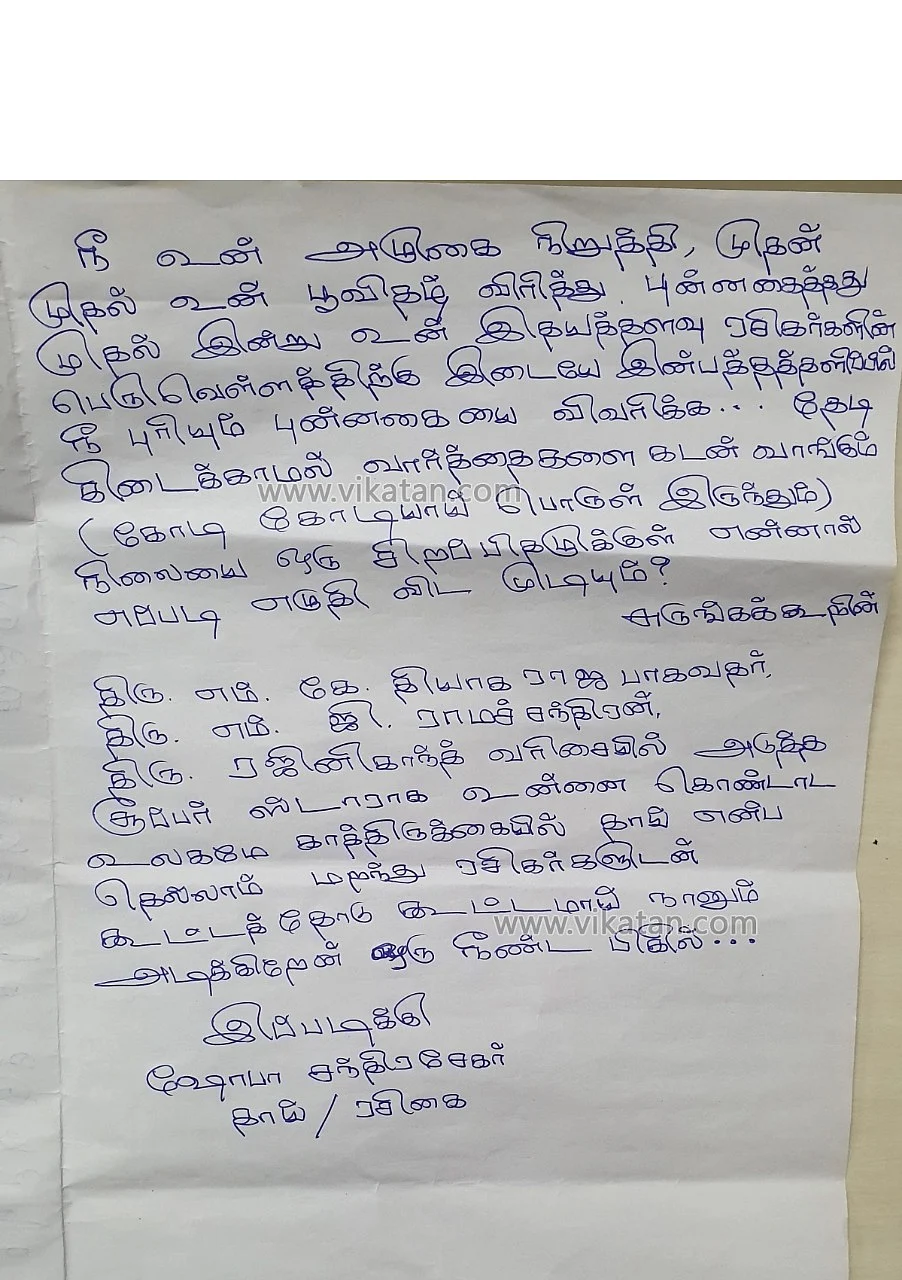 நீ உன் அழுகை நிறுத்தி, முதன்
முதல் உன் பூவிதழ் விரித்து புன்னகைத்தது
முதல் இன்று உன் இதயத்தளவு ரசிகர்களின்
பெருவெள்ளத்திற்கு இடையே இன்பத்தத்தளிப்பில்
நீ புரியும் புன்னகையை விவரிக்க... தேடி
கிடைக்காமல் வார்த்தைகளை கடன் வாங்கும்
www.vikatan.com
(கோடி கோடியாய் பொருள் இருந்தும்)
நிலையை ஒரு சிறப்பிதழுக்குள் என்னால்
எப்படி எழுதி விட முடியும்?
திரு. எம். கே. தியாகராஜ பாகவதர்,
திரு. எம். ஜி. ராமச்சந்திரன்,
திரு. ரஜினிகாந்த் வரிசையில் அடுத்த
சூப்பர் ஸ்டாராக உன்னை கொண்டாட
உலகமே காத்திருக்கையில் தாய் என்ப
தெல்லாம் மறந்து ரசிகர்களுடன்
கூட்டத்தோடு கூட்டமாய் நானும்
www.vikatan.com
அடிக்கிறேன் ஒரு நீண்ட விசில்...
இப்படிக்கு
ஷோபா சந்திரசேகர்
தாய் / ரசிகை